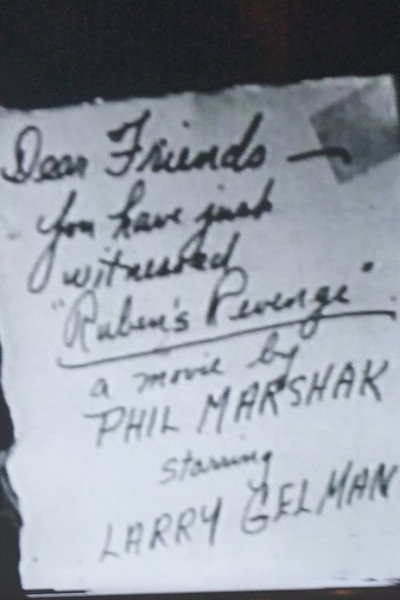 Dear Friends —
you have just
witnessed
"Ruben's Revenge"
a movie by
PHIL MARSHAK
starring
LARRY GELMAN